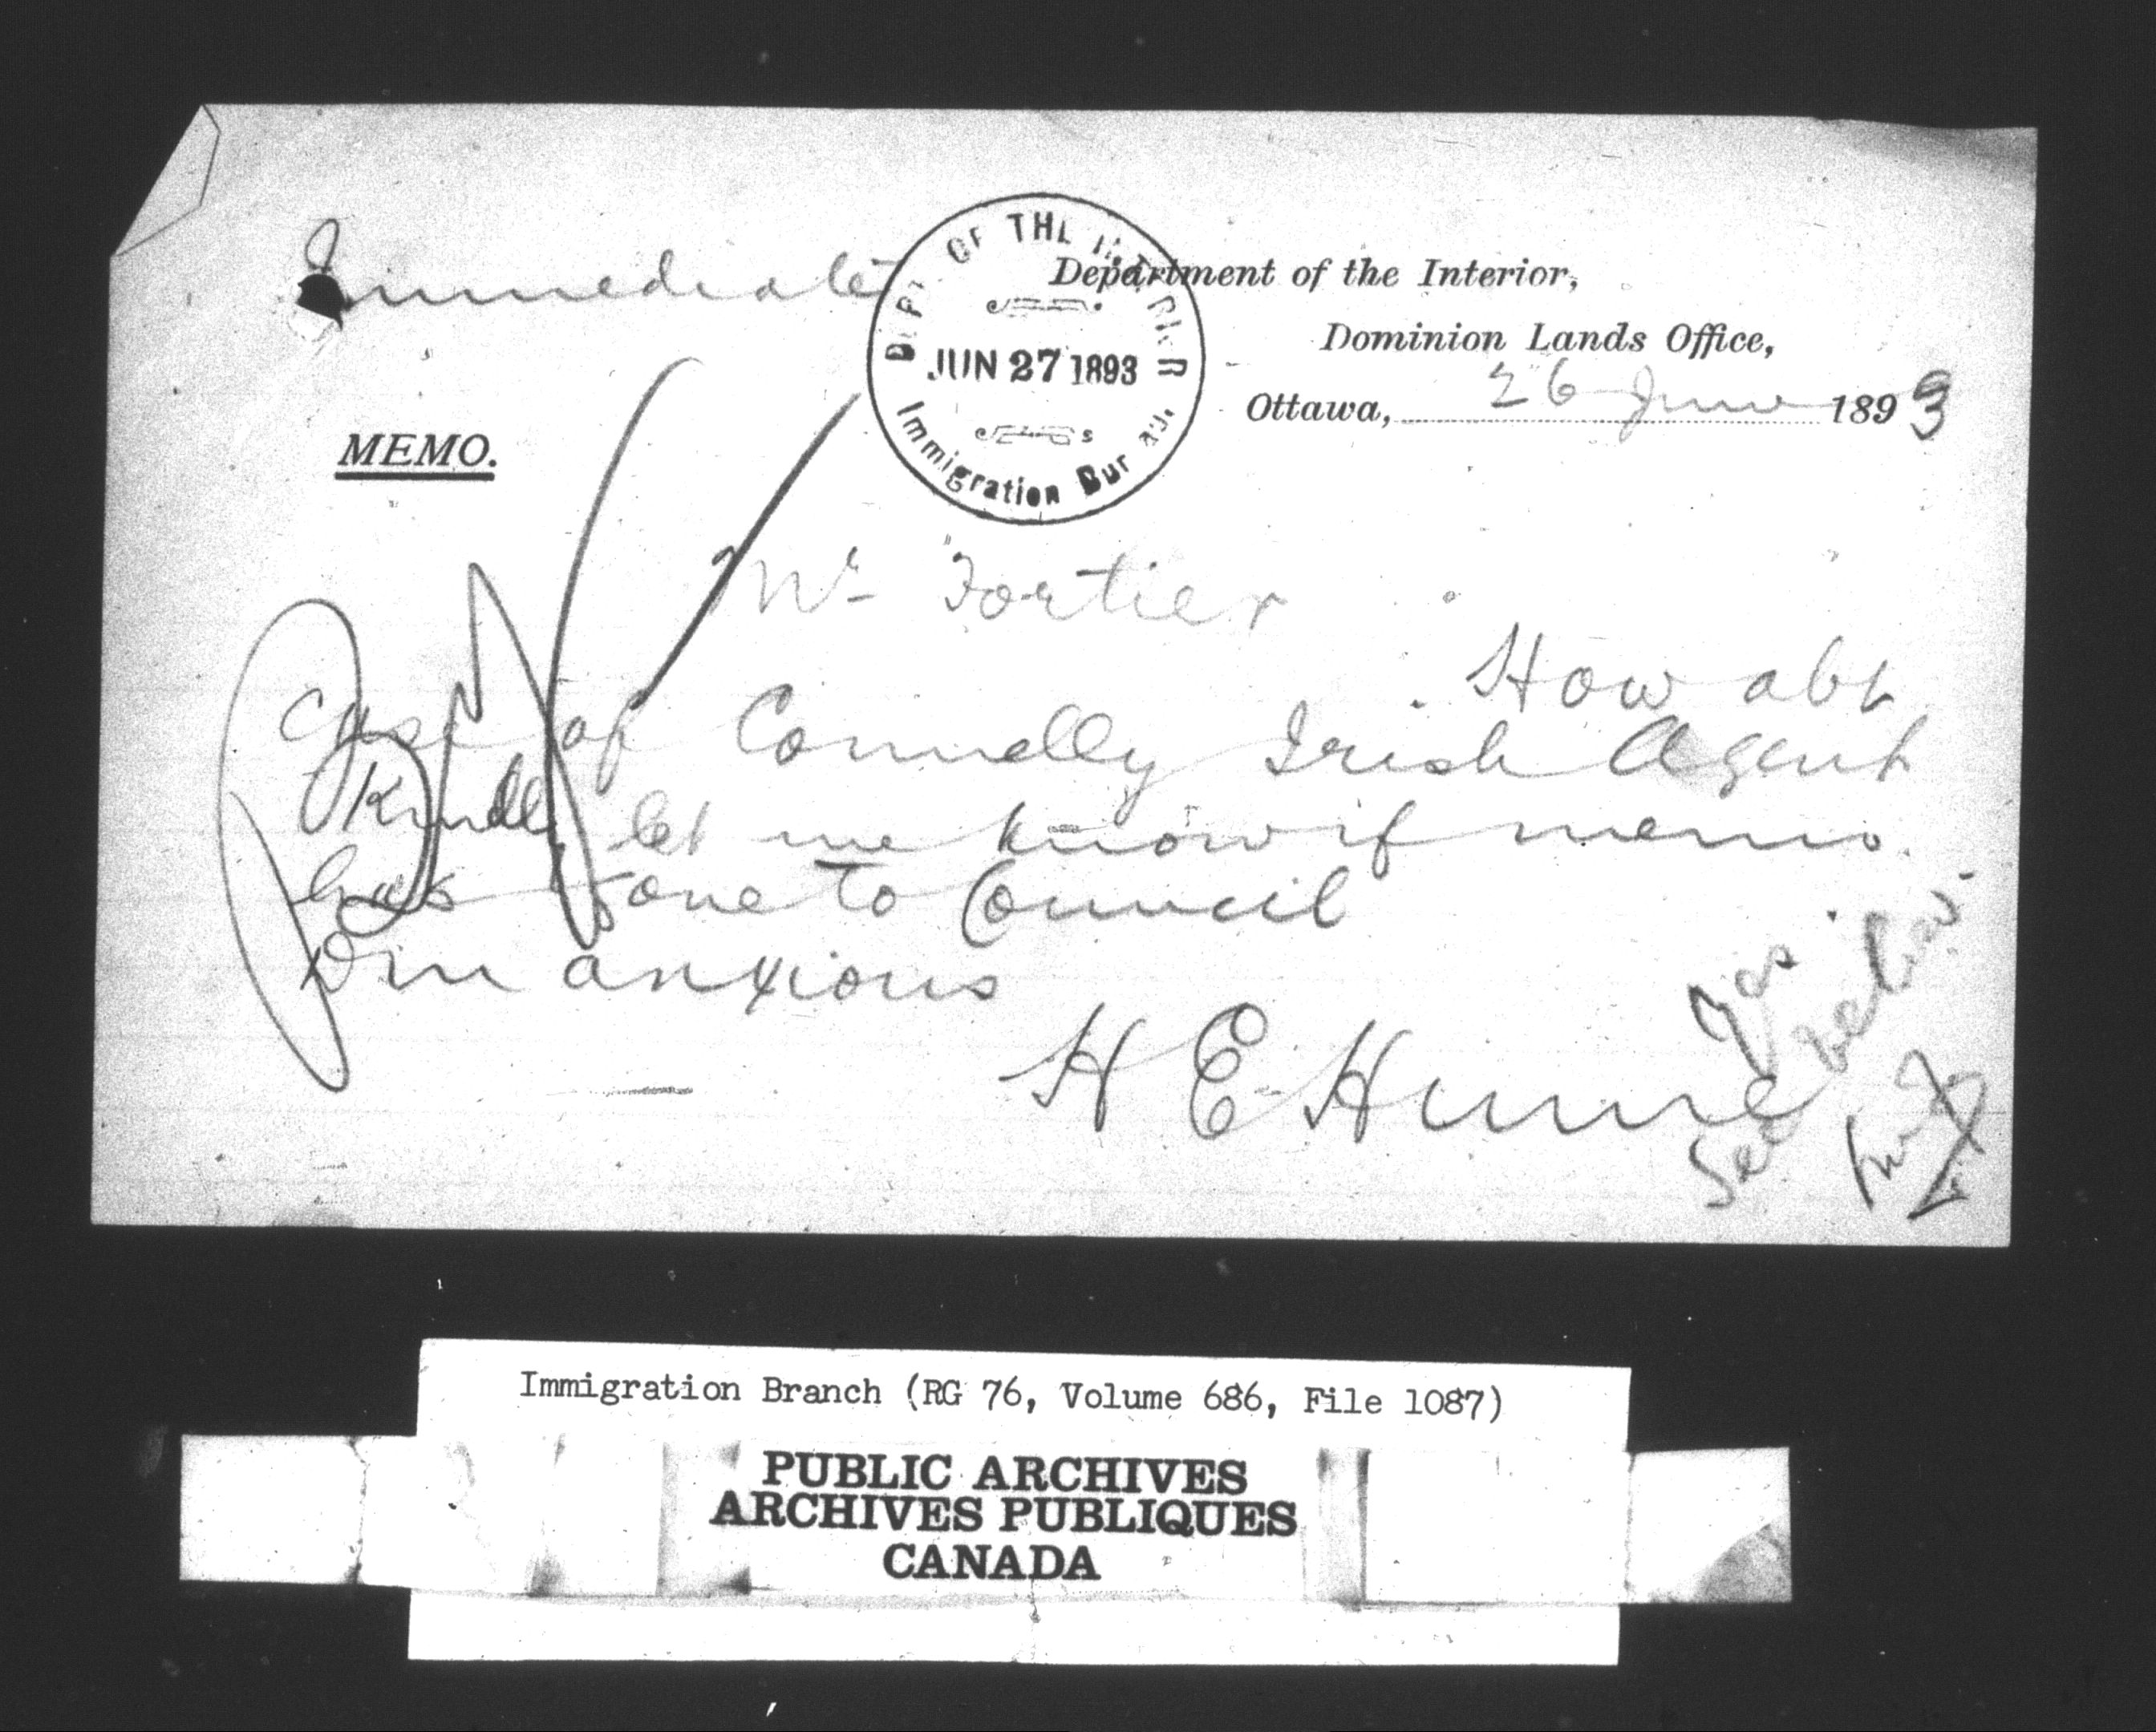 Immediate
DEPT. OF THE INTERIOR
JUN 27 1893
Immigration Bureau.
Department of the Interior,
Dominion Lands Office,
Ottawa, 26 June 1893
MEMO.
Mr Fortier
How abt
Case of Connelly Irish Agent
Kindly let me know if memo.
has gone to Council
Am anxious
H E Hume
Yes.
See below.
Immigration Branch (RG 76, Volume 686, File 1087)
PUBLIC ARCHIVES
ARCHIVES PUBLIQUES
CANADA